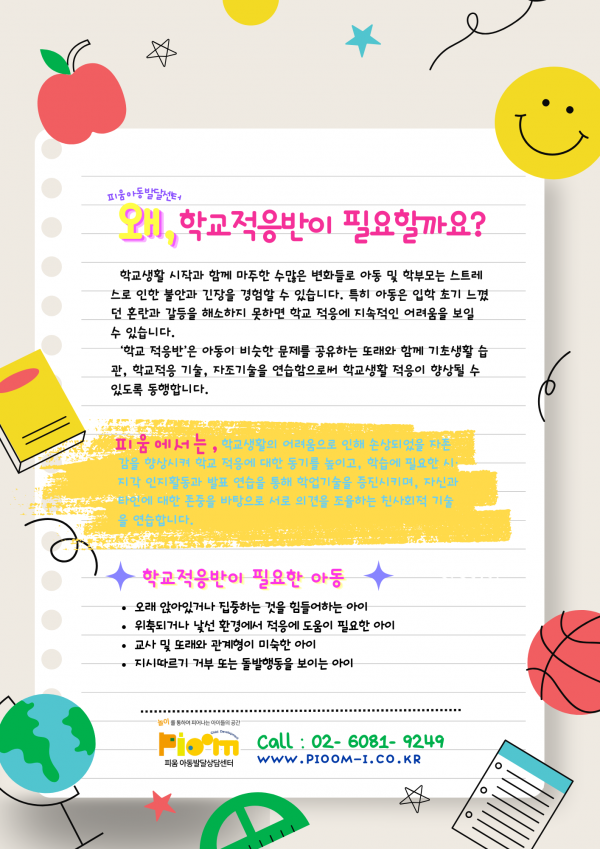 피움아동발달센터
왜, 학교적응반이 필요할까요?
학교생활 시작과 함께 마주한 수많은 변화들로 아동 및 학부모는 스트레
스로 인한 불안과 긴장을 경험할 수 있습니다. 특히 아동은 입학 초기 느꼈
던 혼란과 갈등을 해소하지 못하면 학교 적응에 지속적인 어려움을 보일
수 있습니다.
'학교 적응반'은 아동이 비슷한 문제를 공유하는 또래와 함께 기초생활 습
관, 학교적응 기술, 자조기술을 연습함으로써 학교생활 적응이 향상될 수
있도록 동행합니다.
피움에서는, 학교생활의 어려움으로 인해 손상되었을 자존
감을 향상시켜 학교 적응에 대한 동기를 높이고, 학습에 필요한 시·
지각 인지활동과 발표 연습을 통해 학업기술을 증진시키며, 자신과
타인에 대한 존중을 바탕으로 서로 의견을 조율하는 친사회적 기술
을 연습합니다.
학교적응반이 필요한 아동
• 오래 앉아있거나 집중하는 것을 힘들어하는 아이
• 위축되거나 낯선 환경에서 적응에 도움이 필요한 아이
• 교사 및 또래와 관계형이 미숙한 아이
• 지시따르기 거부 또는 돌발행동을 보이는 아이
놀이를 통하여 피어나는 아이들의 공간
Pioom
피움 아동발달상담센터
Call : 02- 6081- 9249
WWW.PIOOM-I.CO.KR